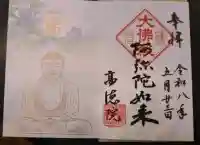 奉拝
令和八年
五月
大佛
阿弥陀如来
高徳院